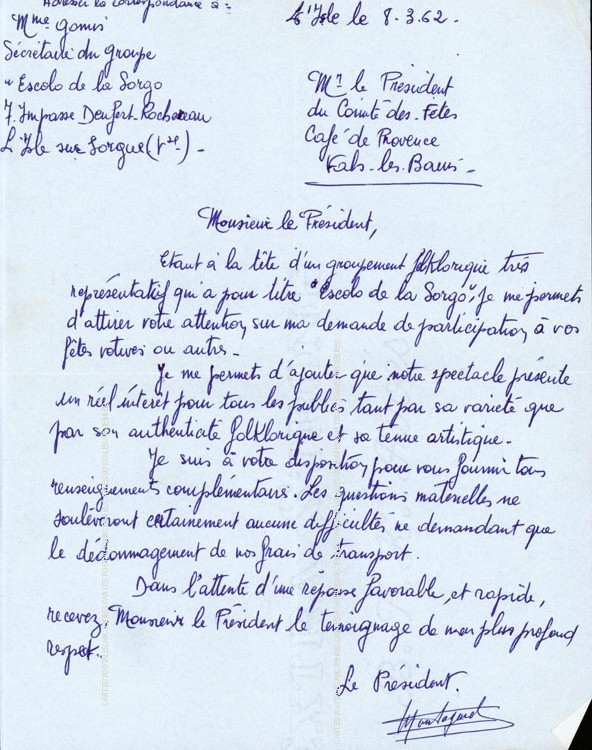 Adresser la correspondance à :
Mme Gomis
Sécrétaire du groupe
" Escolo de la Sorgo
7. Impasse Denfert-Rochereau
L'Isle sur Sorgue (Vse) -
L'Isle le 8.3.62.
Mr le Président
du Comité des Fêtes
Café de Provence
Vals-les-Bains -
Monsieur le Président,
Etant à la tête d'un groupement folklorique très
représentatif qui a pour titre "Escolo de la Sorgo", je me permets
d'attirer votre attention sur ma demande de participation à vos
fêtes votives ou autres -
Je me permets d'ajouter que notre spectacle présente
un réel intérêt pour tous les publics tant par sa varieté que
par son authenticité folklorique et sa tenue artistique -
Je suis à votre disposition pour vous fournir tous
renseignements complémentaires. Les questions matérielles ne
soulèveront certainement aucune difficultés ne demandant que
le dédommagement de nos frais de transport.
Dans l'attente d'une réponse favorable, et rapide,
recevez Monsieur le Président le temoignage de mon plus profond
respect.
Le Président.